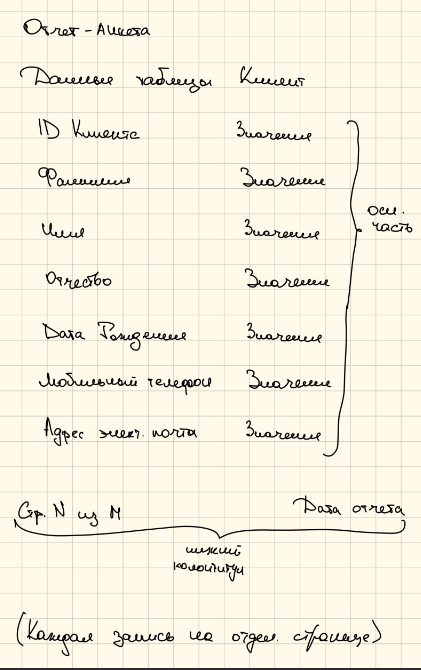 Отчет - Анкета
Данные таблицы Клиент
ID Клиента Значение
Фамилия Значение
Имя Значение
Отчество Значение
Дата Рождения Значение
Мобильный телефон Значение
Адрес элект. почты Значение
осн.
часть
Стр. N из M Дата отчета
нижний
колонтитул
(Каждая запись на отдел. странице)